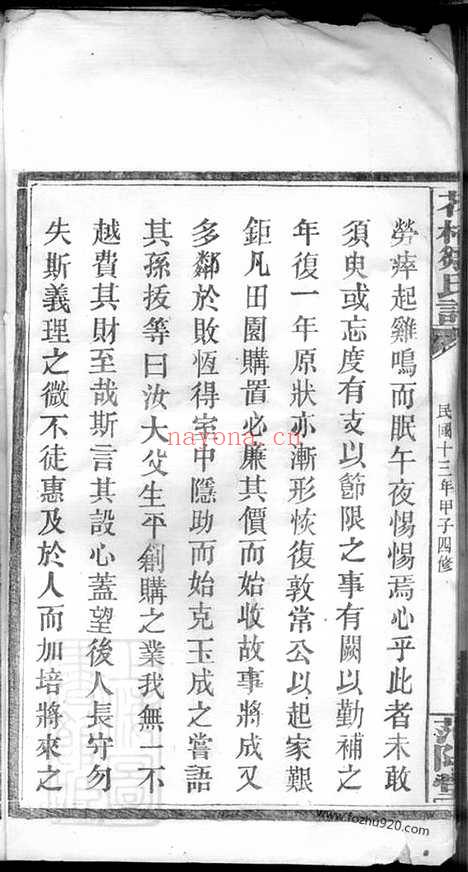 民國十三年甲子四修
勞瘁起雞鳴而眠午夜惕惕焉心乎此者未敢
須臾或忘度有支以節限之事有闕以勤補之
年復一年原狀亦漸形恢復敦常公以起家艱
鉅凡田園購置必廉其價而始收故事將成又
多鄰於敗恆得宅中隱助而始克玉成之嘗語
其孫拔等曰汝大父生平創購之業我無一不
越費其財至哉斯言其設心蓋望後人長守勿
失斯義理之微不徒惠及於人而加培將來之
nayona.cn
www.fozhu920.com